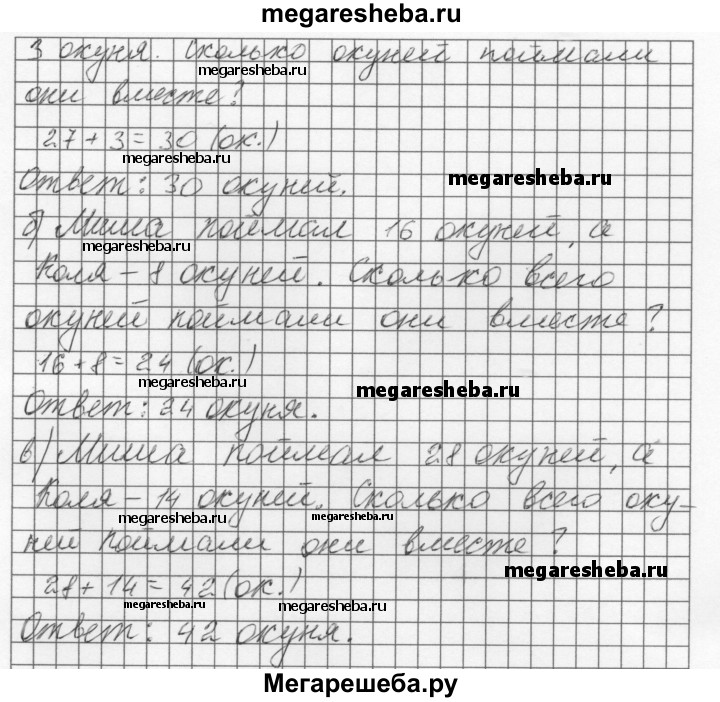 megaresheba.ru
3 окуня. Сколько окуней поймали
megaresheba.ru
они вместе?
27 + 3 = 30 (ок.)
megaresheba.ru
Ответ: 30 окуней.
megaresheba.ru
б) Миша поймал 16 окуней, а
megaresheba.ru
Коля – 8 окуней. Сколько всего
окуней поймали они вместе?
16 + 8 = 24 (ок.)
megaresheba.ru
megaresheba.ru
Ответ: 24 окуня.
в) Миша поймал 28 окуней, а
Коля – 14 окуней. Сколько всего оку-
megaresheba.ru
megaresheba.ru
ней поймали они вместе?
megaresheba.ru
28 + 14 = 42 (ок.)
megaresheba.ru
megaresheba.ru
Ответ: 42 окуня.
Мегарешеба.ру